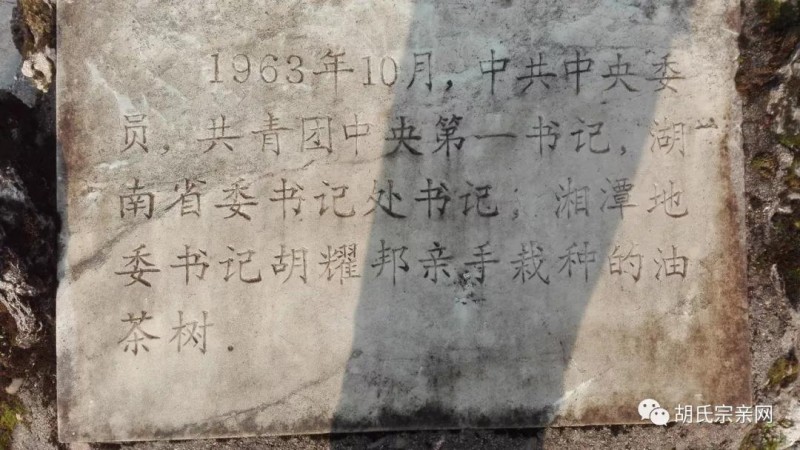 1963年10月，中共中央委
员，共青团中央第一书记，湖
南省委书记处书记，湘潭地
委书记胡耀邦亲手栽种的油
茶树.
胡氏宗亲网